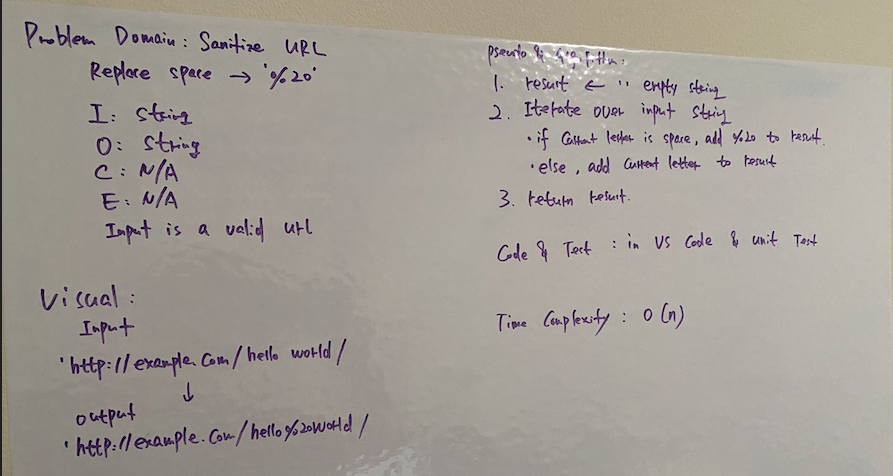 Problem Domain: Sanitize URL
Replace space → '%20'
I: string
O: string
C: N/A
E: N/A
Input is a valid url
Visual:
Input
'http://example.com/hello world/
↓
output
'http://example.com/hello%20world/
pseudo & algorithm:
1. result ← '' empty string
2. Iterate over input string
• if current letter is space, add %20 to result.
• else, add current letter to result
3. return result.
Code & Test : in VS Code & unit Test
Time Complexity : O(n)